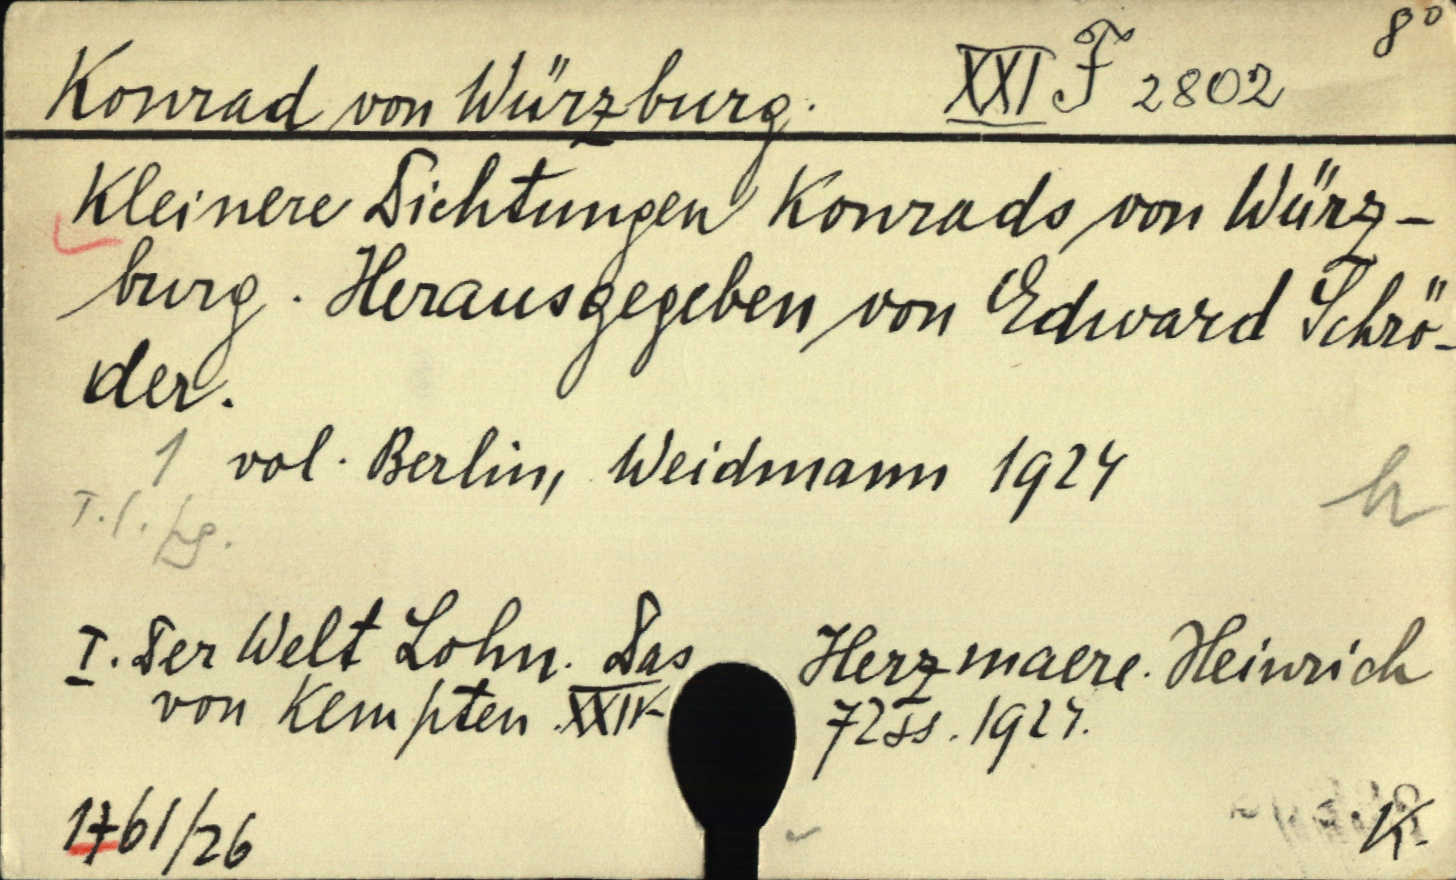 8°
Konrad von Würzburg. XXI F 2802
Kleinere Dichtungen Konrads von Würz-
burg. Herausgegeben von Edward Schrö-
der.
1 vol. Berlin, Weidmann 1924
h
I. Der Welt Lohn. Das Herzmaere. Heinrich
von Kempten. XXIV 72 SS. 1924.
1761/26
K.